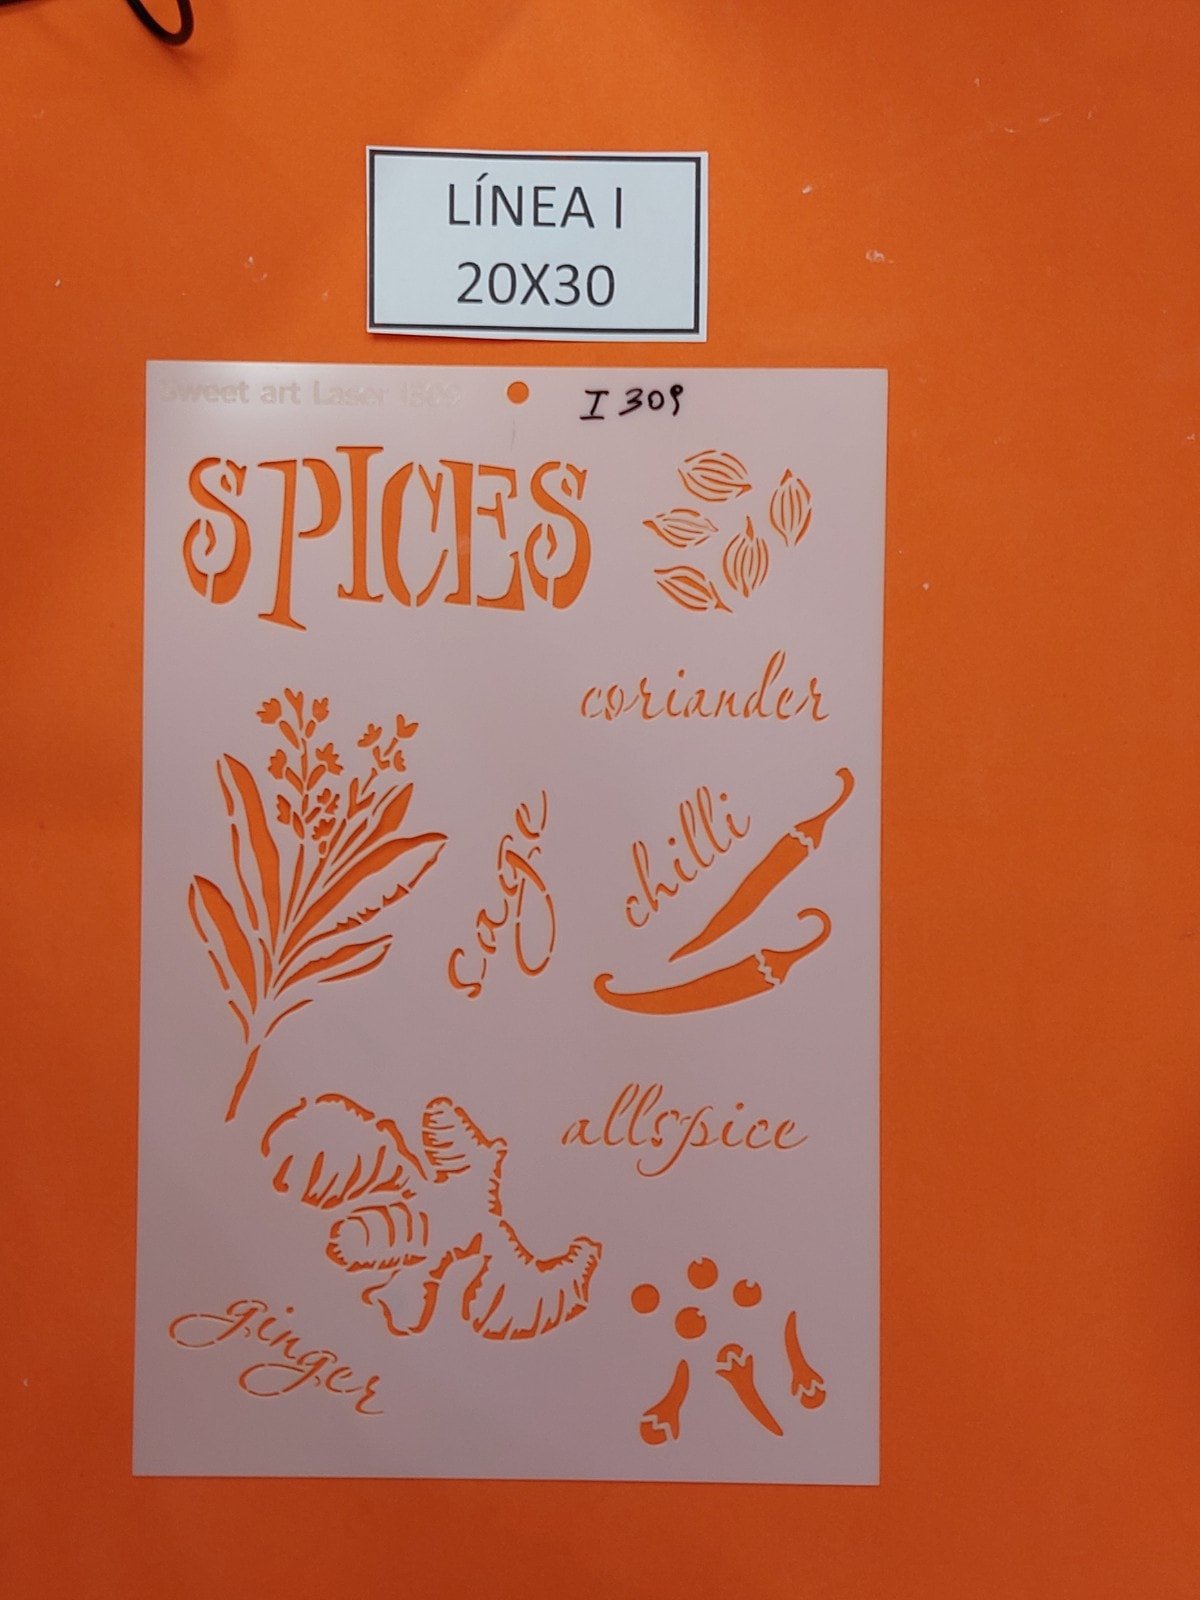 LÍNEA I
20X30
Sweet art Laser I309
I 309
SPICES
coriander
chilli
sage
allspice
ginger